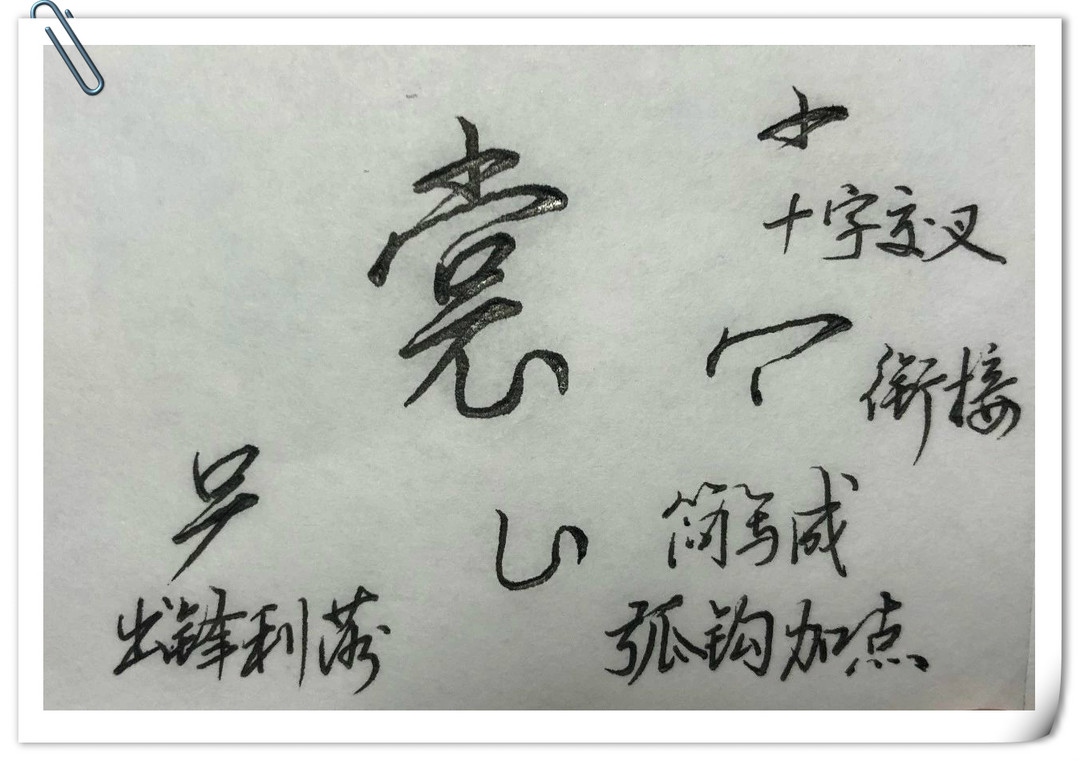 裳
十字交叉
衔接
出锋利落
简写成
弧钩加点